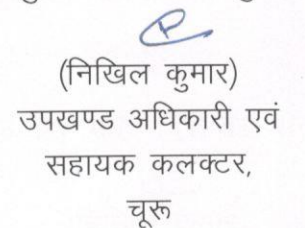 (निखिल कुमार)
उपखण्ड अधिकारी एवं
सहायक कलक्टर,
चूरू